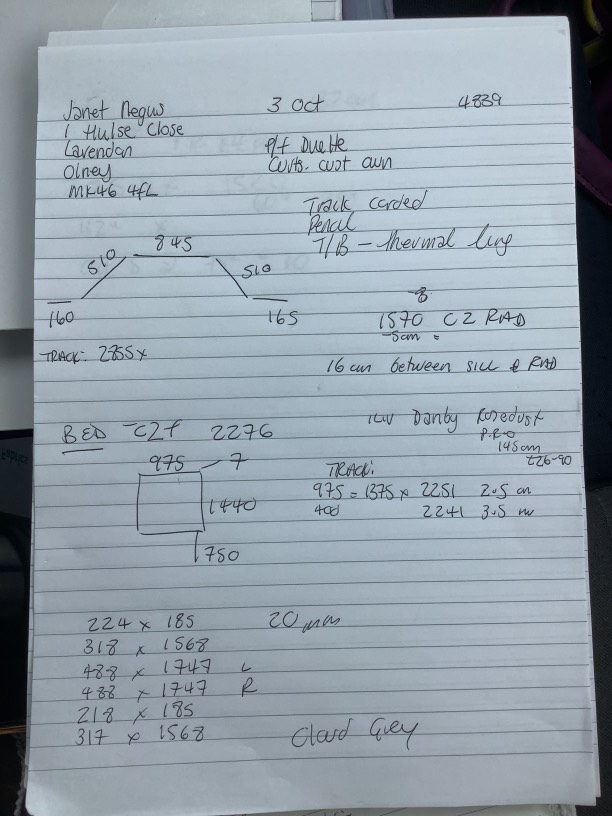 Janet Negus 3 Oct 4839
1 Hulse Close
Lavendon P/f Duette
Olney Curts. cust own
MK46 4fL
Track corded
Pencil
T/B - thermal ling
510 845 510
160 165
1570 C2 RAD
-5cm =
TRACK: 2855 x
16 cm between sill & RAD
BED C2f 2276
iliv Danby Rosedust
P.R.O
145cm
£26-90
975 - 7
1440
750
TRACK:
975 = 1375 x 2251 2.5 cm
400 2241 3.5
224 x 185 20mm
318 x 1568
488 x 1747 L
488 x 1747 R
218 x 185
317 x 1568
Cloud Grey